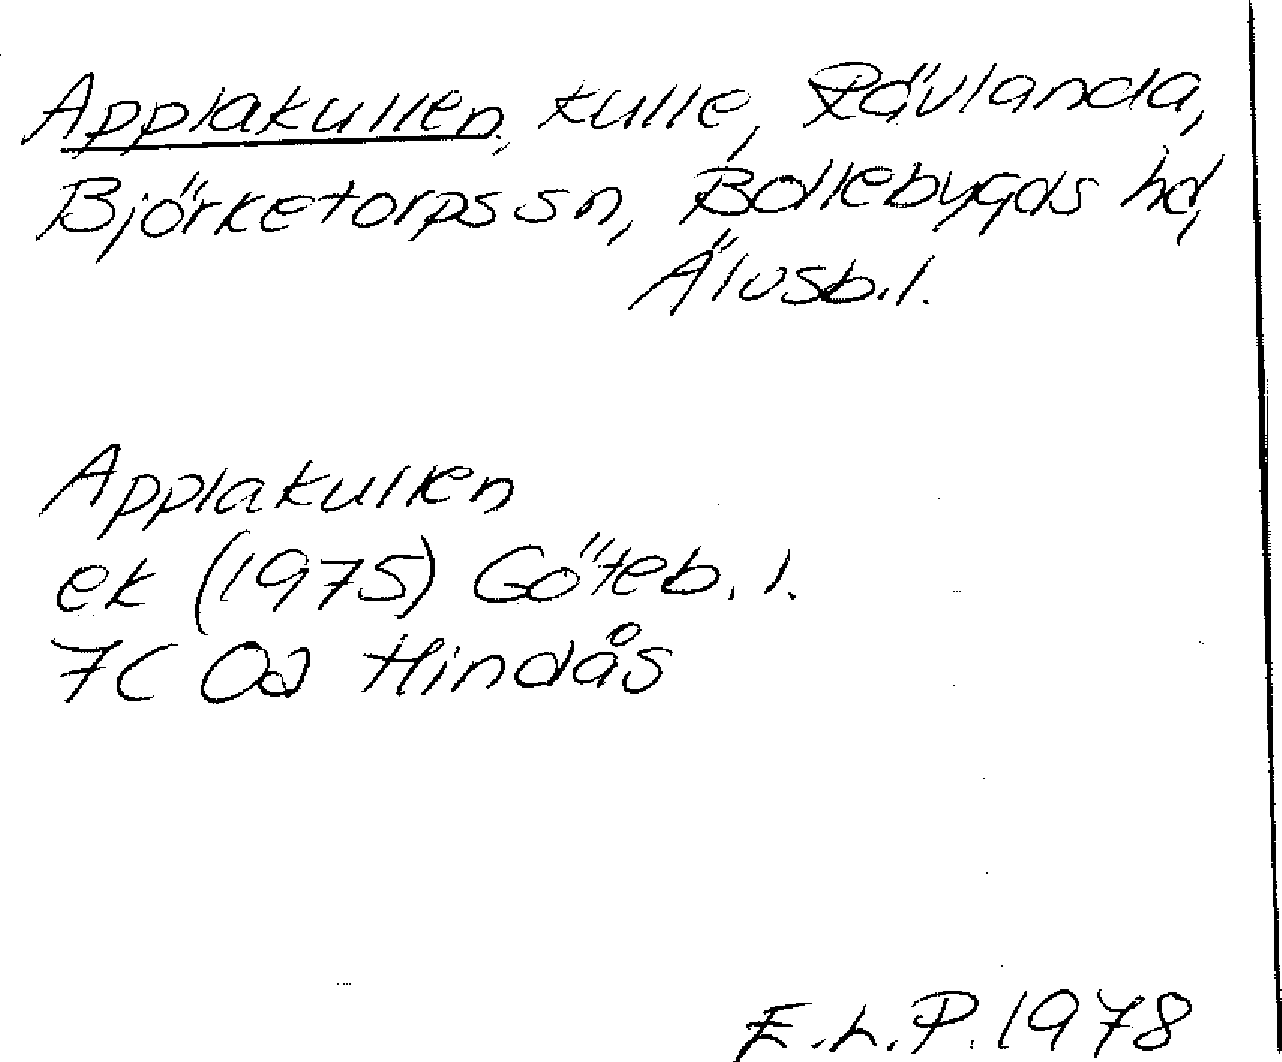 Applakullen, kulle, Rävlanda,
Björketorps sn, Bollebygds hd,
Älvsb.l.
Applakullen
ek (1975) Göteb. l.
7C 0a Hindås
E.L.P. 1978